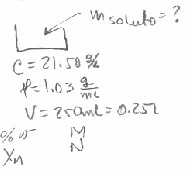 m soluto = ?
C = 21.50 %
ρ = 1.03 g/mL
V = 250mL = 0.25L
% w
M
N
Xn